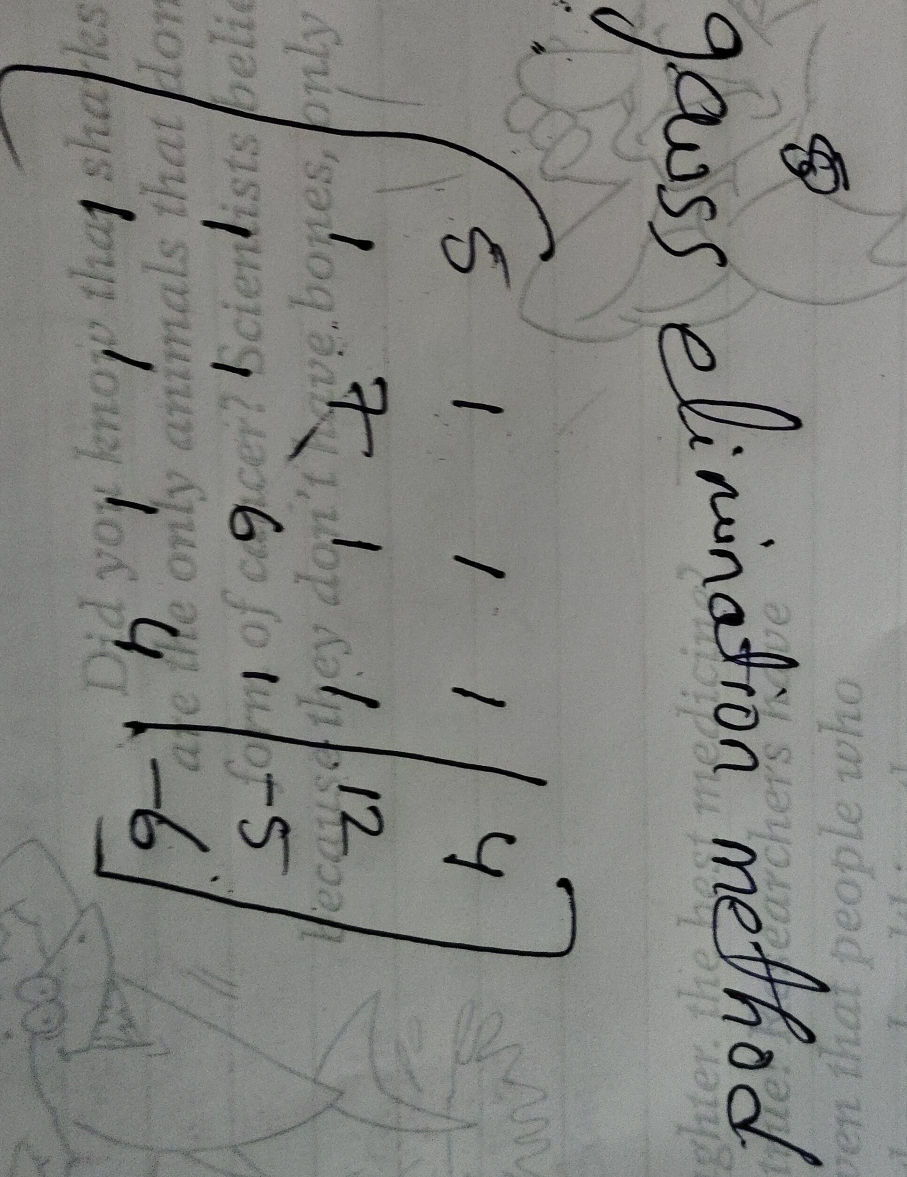 gauss elimination method
5 1 1 1 | 4
1 7 1 1 | 12
1 1 6 1 | -5
1 1 1 4 | -6
Did you know that sharks
are the only animals that don
form of cancer? Scientists belie
because they don't have bones, only
ghter the best medicine?
Researchers have
ven that people who